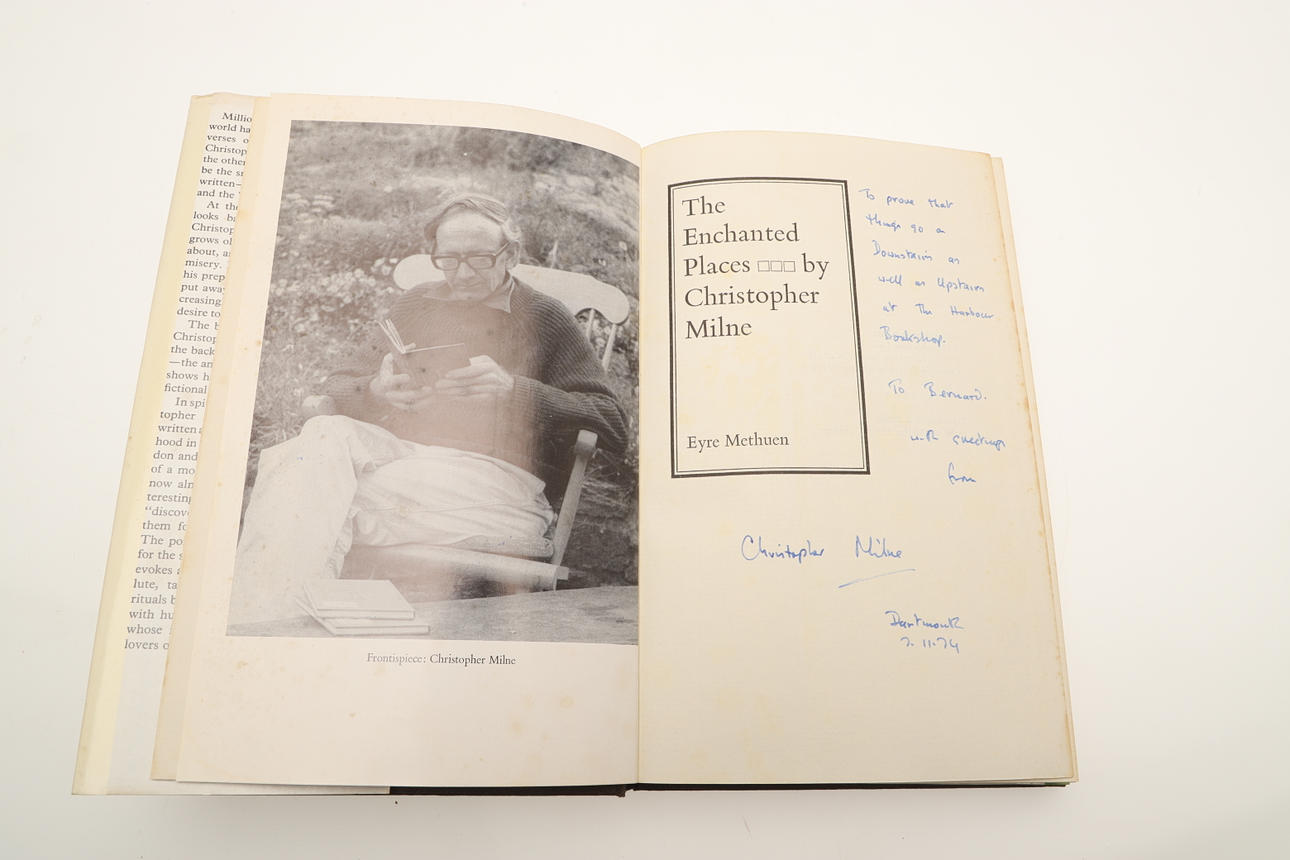 Millio
world ha
verses o
Christop
the other
be the sr
written—
and the
At the
looks ba
Christop
grows ol
about, a
misery.
his prep
put away
creasing
desire to
The b
Christop
the back
—the an
shows h
fictional
In spi
topher
written a
hood in
don and
of a mo
now alm
teresting
“discove
them fo
The po
for the s
evokes a
lute, ta
rituals b
with hu
whose
lovers o
Frontispiece: Christopher Milne
The
Enchanted
Places □□□ by
Christopher
Milne
Eyre Methuen
To prove that
things go on
Downstairs as
well as Upstairs
at The Harbour
Bookshop.
To Bernard.
with greetings
from
Christopher Milne
Dartmouth
7.11.74